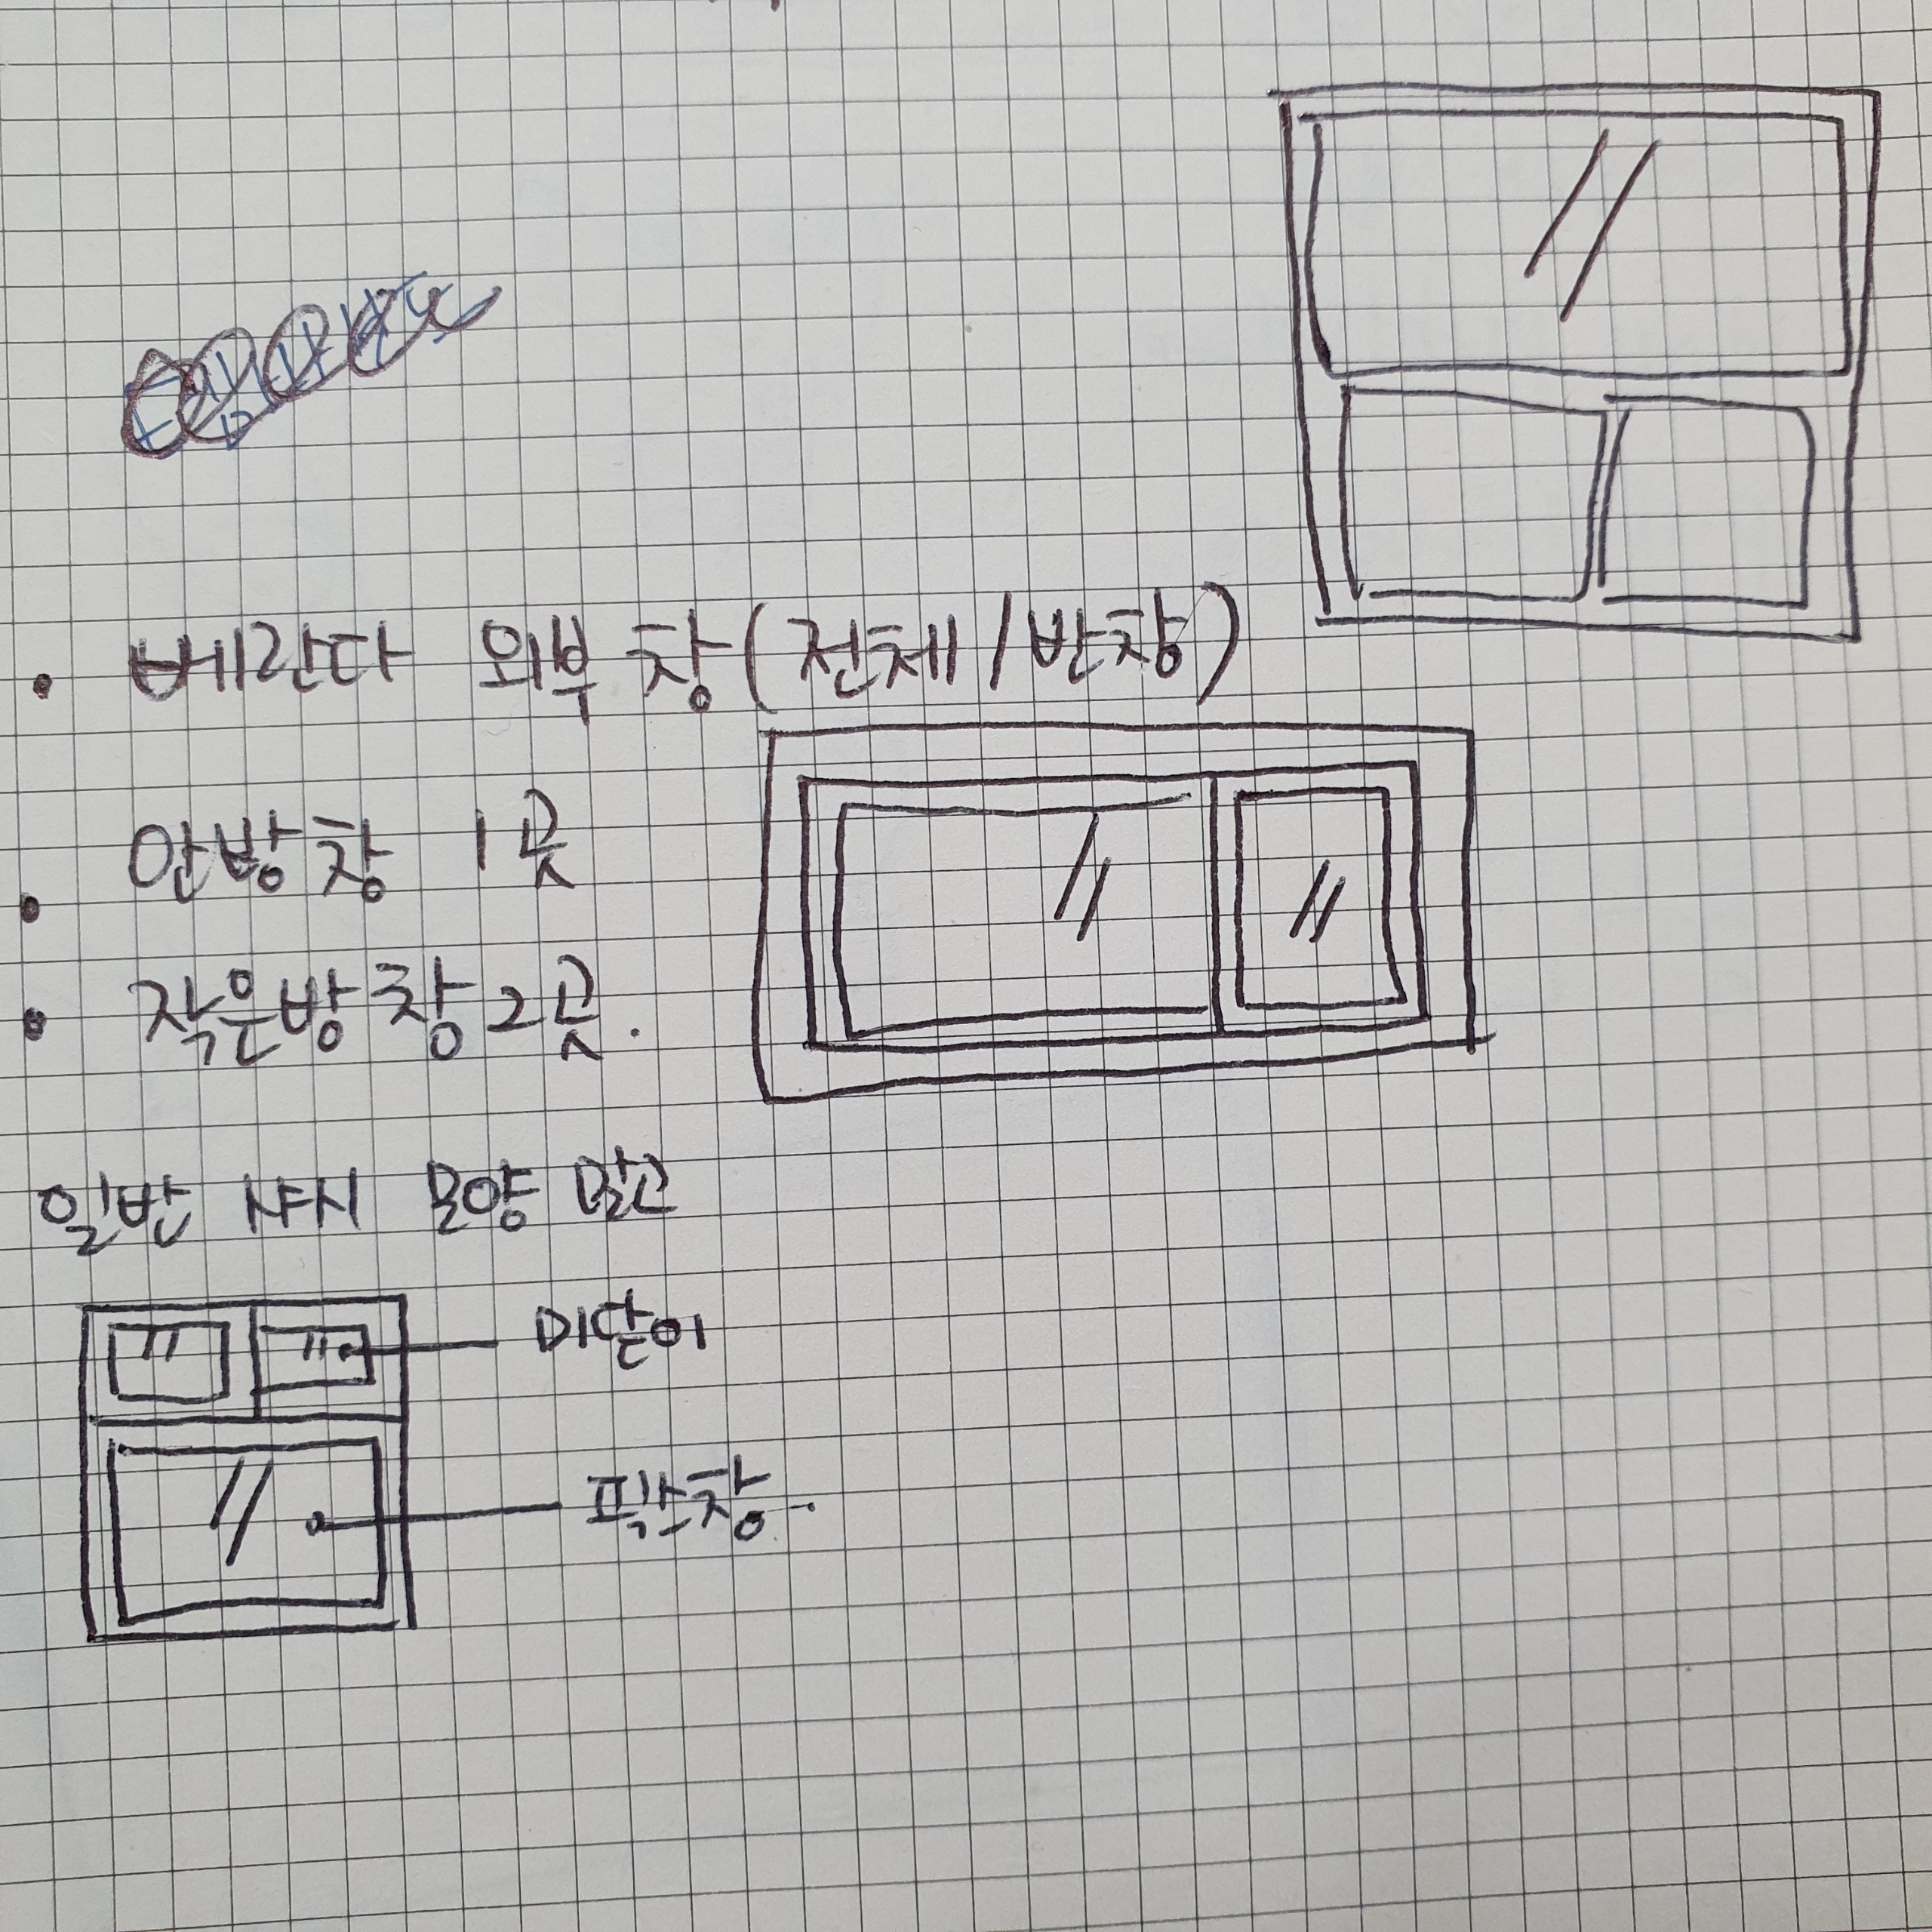 베란다 외부창(전체/반창)
안방창 1곳
작은방창 2곳.
일반 샤시 모양 말고
미닫이
픽스창.